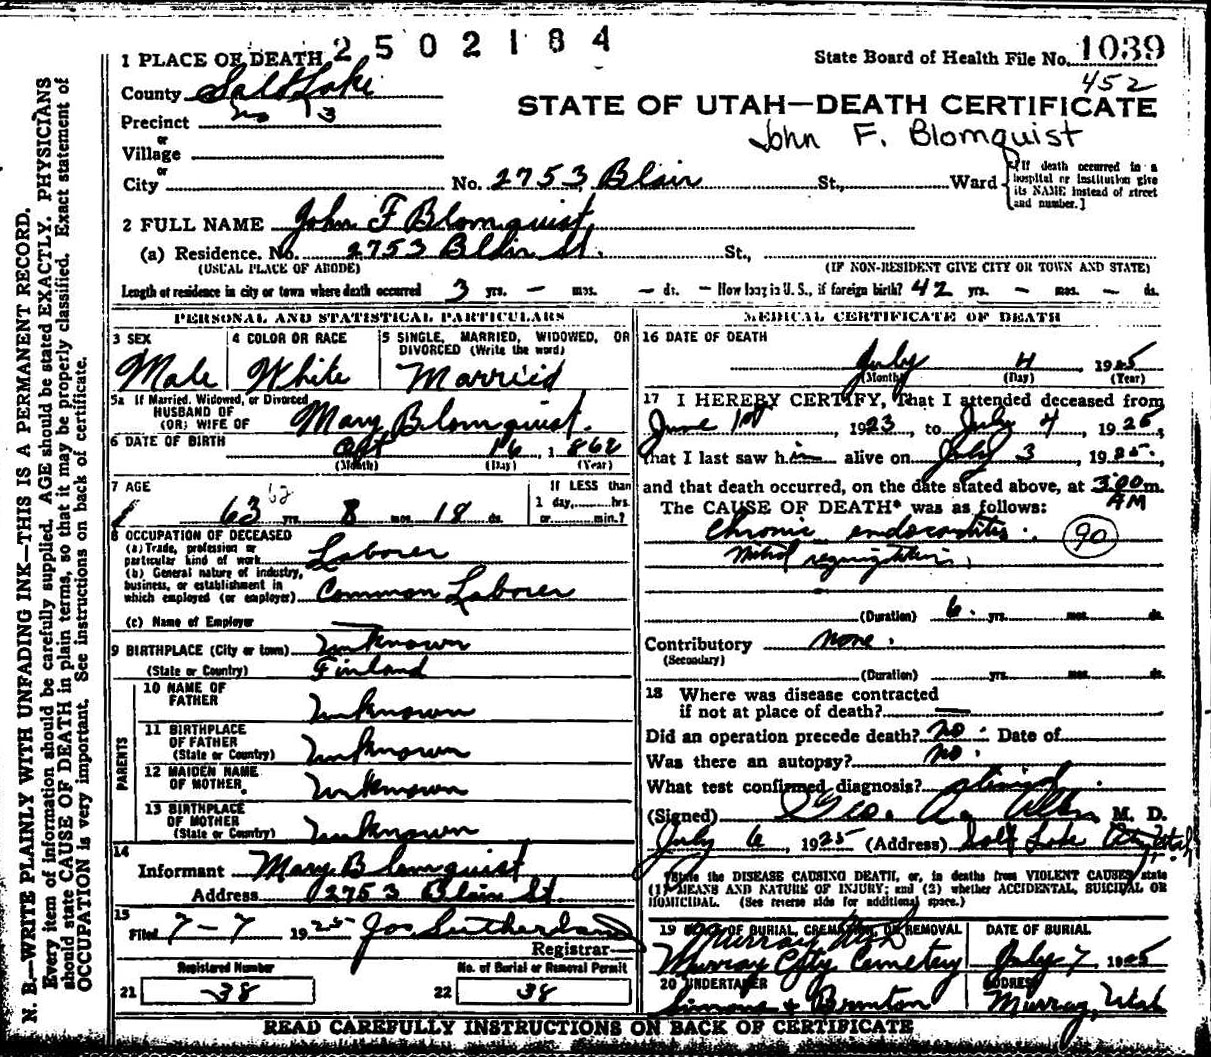 2502184
1 PLACE OF DEATH
State Board of Health File No. 1039
County Salt Lake
452
STATE OF UTAH—DEATH CERTIFICATE
Precinct no 13
John F. Blomquist
or
Village
or
City No. 2753 Blair St., Ward
[If death occurred in a hospital or institution give its NAME instead of street and number.]
2 FULL NAME John F Blomquist
(a) Residence. No. 2753 Blair St. St.,
(USUAL PLACE OF ABODE) (IF NON-RESIDENT GIVE CITY OR TOWN AND STATE)
Length of residence in city or town where death occurred 3 yrs. — mos. — ds. — How long in U. S., if foreign birth? 42 yrs. — mos. — ds.
PERSONAL AND STATISTICAL PARTICULARS
3 SEX
Male
4 COLOR OR RACE
White
5 SINGLE, MARRIED, WIDOWED, OR DIVORCED (Write the word)
Married
5a If Married, Widowed, or Divorced
HUSBAND OF
(OR) WIFE OF Mary Blomquist.
6 DATE OF BIRTH 16, 1862
(Month) (Day) (Year)
7 AGE
62
63 yrs. 8 mos. 18 ds.
If LESS than
1 day, hrs.
or min.?
8 OCCUPATION OF DECEASED
(a) Trade, profession or
particular kind of work Laborer
(b) General nature of industry,
business, or establishment in
which employed (or employer) Common Laborer
(c) Name of Employer
9 BIRTHPLACE (City or town) Unknown
(State or Country) Finland
PARENTS
10 NAME OF
FATHER Unknown
11 BIRTHPLACE
OF FATHER
(State or Country) Unknown
12 MAIDEN NAME
OF MOTHER Unknown
13 BIRTHPLACE
OF MOTHER
(State or Country) Unknown
14
Informant Mary Blomquist
Address 2753 Blair St.
15
Filed 7-7 1925 Jos Sutherland
Registrar
Registered Number
21 38
No. of Burial or Removal Permit
22 38
MEDICAL CERTIFICATE OF DEATH
16 DATE OF DEATH
July 4 1925
(Month) (Day) (Year)
17 I HEREBY CERTIFY, That I attended deceased from
June 1st, 1923, to July 4, 1925,
that I last saw him alive on July 3, 1925.
and that death occurred, on the date stated above, at 3:00 m.
AM
The CAUSE OF DEATH* was as follows:
Chronic endocarditis. 90
Mitral regurgitation,
(Duration) 6 yrs. mos. ds.
Contributory none.
(Secondary)
(Duration) yrs. mos. ds.
18 Where was disease contracted
if not at place of death? —
Did an operation precede death? no. Date of
Was there an autopsy? no.
What test confirmed diagnosis?
(Signed) Geo. A. M. D.
July 6, 1925 (Address) Salt Lake City Utah
*State the DISEASE CAUSING DEATH, or, in deaths from VIOLENT CAUSES, state
(1) MEANS AND NATURE OF INJURY; and (2) whether ACCIDENTAL, SUICIDAL OR
HOMICIDAL. (See reverse side for additional space.)
19 PLACE OF BURIAL, CREMATION, OR REMOVAL
Murray Utah
Murray City Cemetery
DATE OF BURIAL
July 7, 1925
20 UNDERTAKER
ADDRESS
Murray, Utah
READ CAREFULLY INSTRUCTIONS ON BACK OF CERTIFICATE
N. B.—WRITE PLAINLY WITH UNFADING INK—THIS IS A PERMANENT RECORD.
Every item of information should be carefully supplied. AGE should be stated EXACTLY. PHYSICIANS
should state CAUSE OF DEATH in plain terms, so that it may be properly classified. Exact statement of
OCCUPATION is very important. See instructions on back of certificate.